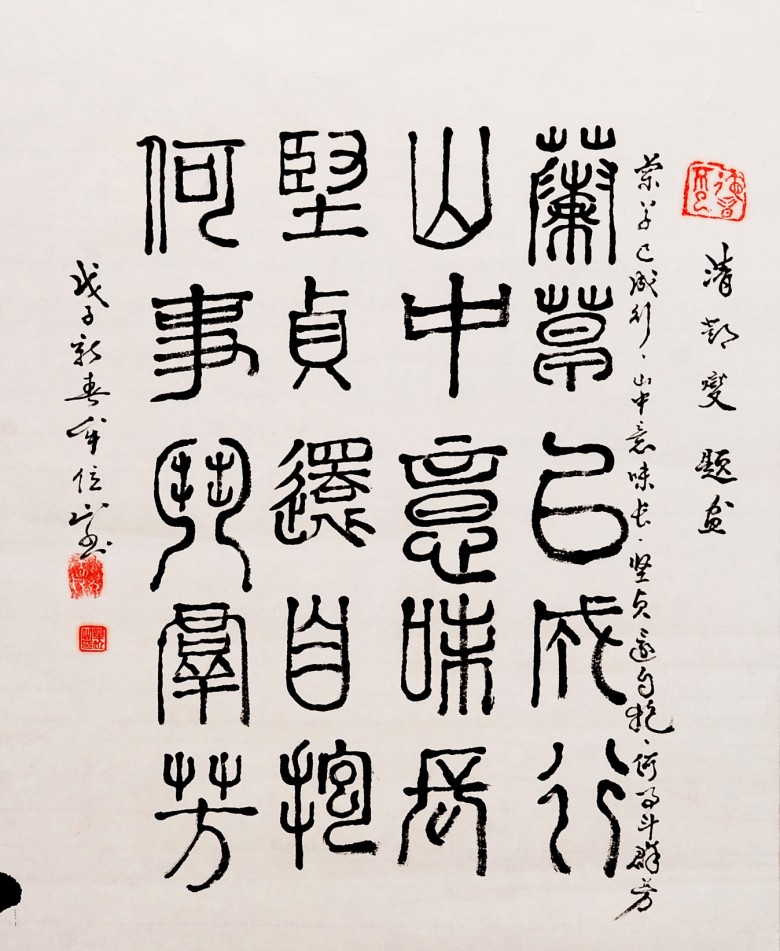 清郑燮题画
兰草已成行、山中意味长、坚贞还自抱、何事斗群芳
蘭草已成行
山中意味長
堅貞還自抱
何事鬥羣芳
戊子新春